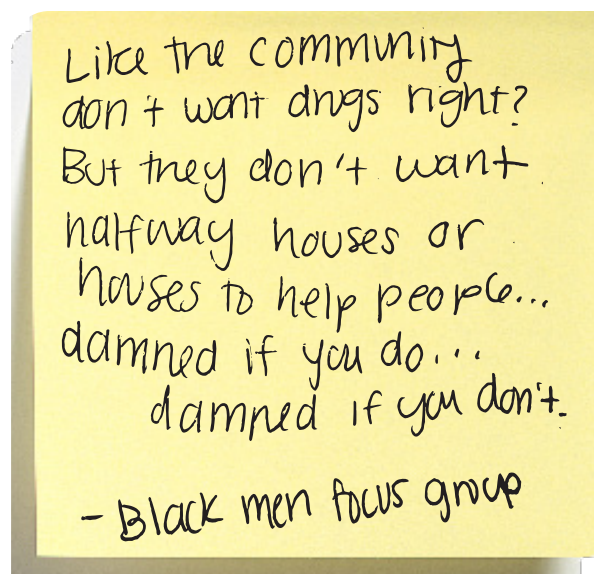 Like the community
don't want drugs right?
But they don't want
halfway houses or
houses to help people...
damned if you do...
damned if you don't.
- Black men focus group